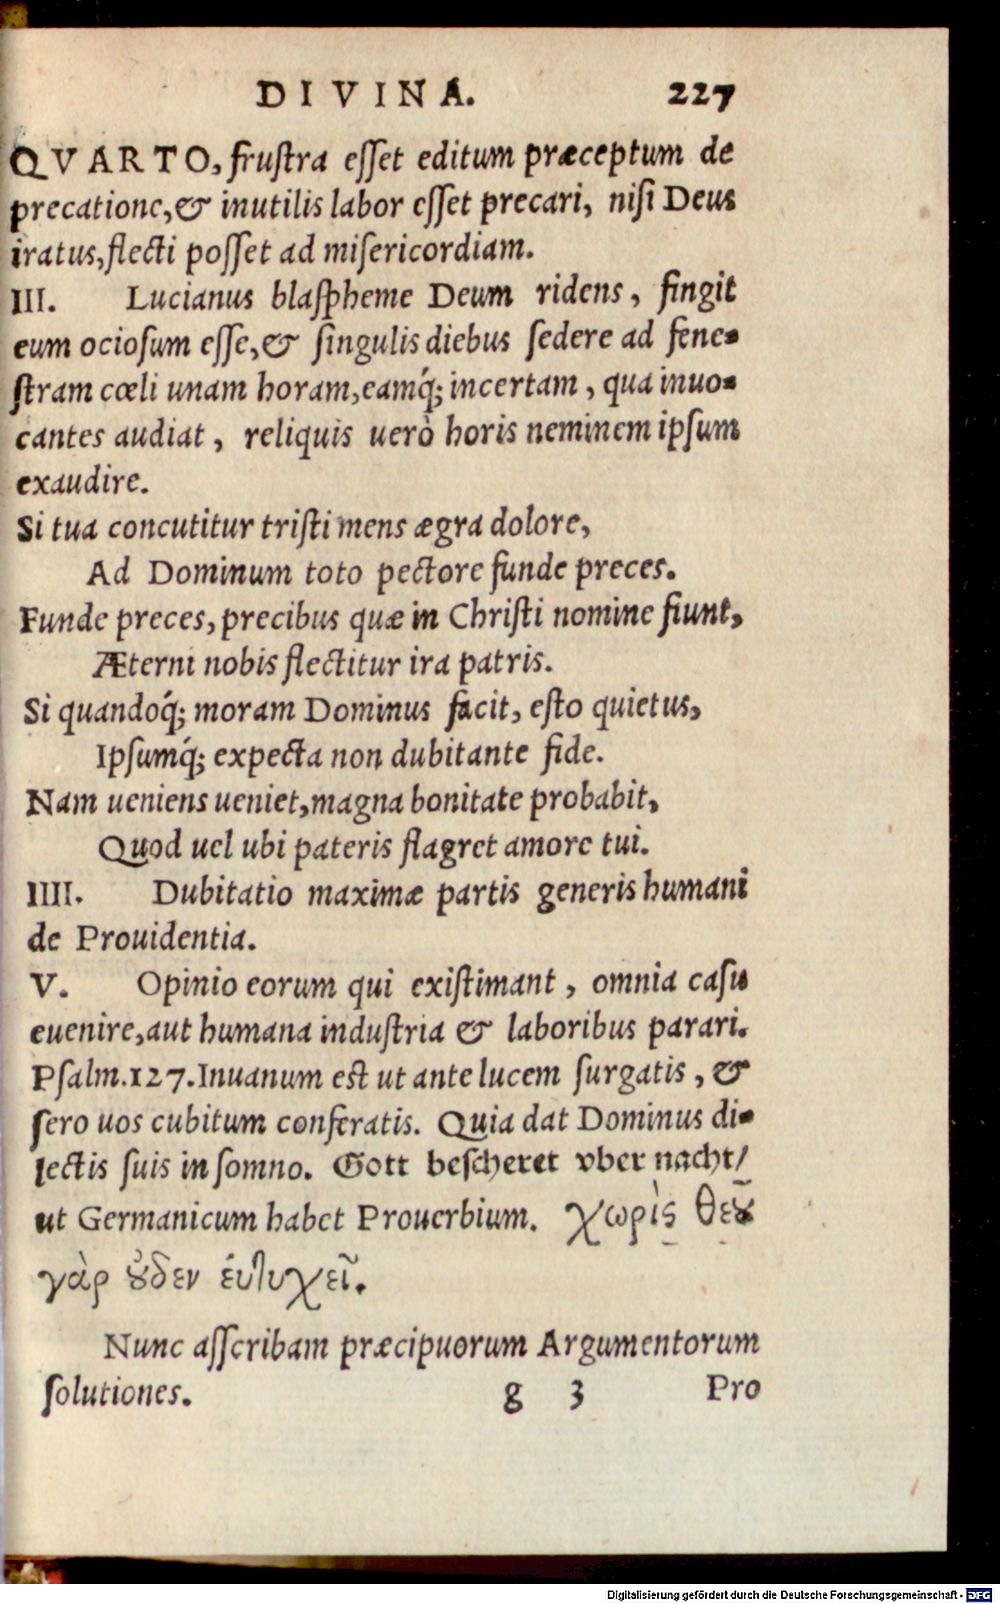 DIVINA. 227
QVARTO, frustra esset editum præceptum de
precatione, & inutilis labor esset precari, nisi Deus
iratus, flecti posset ad misericordiam.
III. Lucianus blaspheme Deum ridens, fingit
eum ociosum esse, & singulis diebus sedere ad fene-
stram cœli unam horam, eamq́; incertam, qua inuo-
cantes audiat, reliquis uerò horis neminem ipsum
exaudire.
Si tua concutitur tristi mens ægra dolore,
Ad Dominum toto pectore funde preces.
Funde preces, precibus quæ in Christi nomine fiunt,
Æterni nobis flectitur ira patris.
Si quandoq́; moram Dominus facit, esto quietus,
Ipsumq́; expecta non dubitante fide.
Nam ueniens ueniet, magna bonitate probabit,
Quod uel ubi pateris flagret amore tui.
IIII. Dubitatio maximæ partis generis humani
de Prouidentia.
V. Opinio eorum qui existimant, omnia casu
euenire, aut humana industria & laboribus parari.
Psalm.127. Inuanum est ut ante lucem surgatis, &
sero uos cubitum conferatis. Quia dat Dominus di-
lectis suis in somno. Gott bescheret vber nacht/
ut Germanicum habet Prouerbium. χωρὶς θεȣ͂
γὰρ ȣ̓δεν ἐυτυχεῖ.
Nunc asscribam præcipuorum Argumentorum
solutiones. g 3 Pro
Digitalisierung gefördert durch die Deutsche Forschungsgemeinschaft - DFG